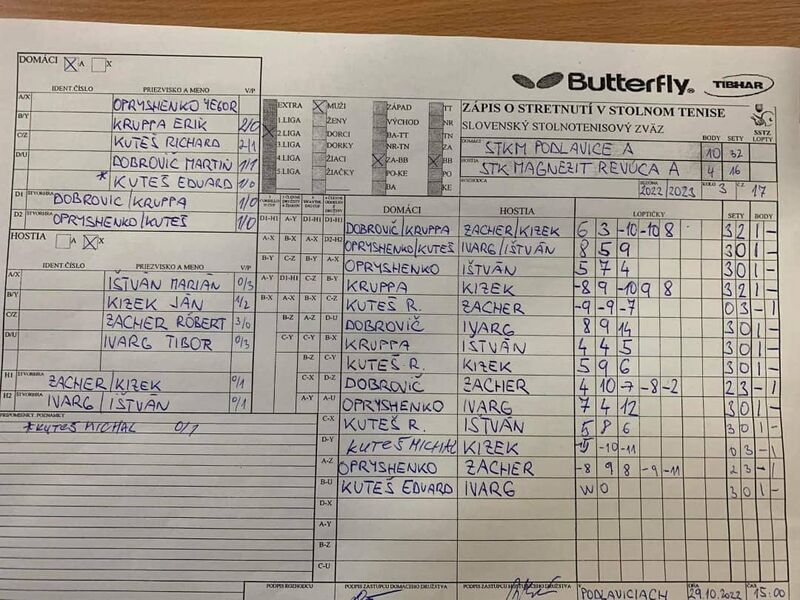 DOMÁCI X A X
IDENT.ČÍSLO PRIEZVISKO A MENO V/P
A/X OPRYSHENKO YEGOR
B/Y KRUPPA ERIK 2/0
C/Z KUTEŠ RICHARD 2/1
D/U DOBROVIČ MARTIN 1/1
* KUTEŠ EDUARD 1/0
D1 ŠTVORHRA DOBROVIC/KRUPPA 1/0
D2 ŠTVORHRA OPRYSHENKO/KUTEŠ 1/0
HOSTIA A X X
IDENT.ČÍSLO PRIEZVISKO A MENO V/P
A/X IŠTVÁN MARIÁN 0/3
B/Y KIZEK JÁN 1/2
C/Z ZACHER RÓBERT 3/0
D/U IVARG TIBOR 0/3
H1 ŠTVORHRA ZACHER/KIZEK 0/1
H2 ŠTVORHRA IVARG/IŠTVÁN 0/1
PRIPOMIENKY, POZNÁMKY
*KUTEŠ MICHAL 0/1
Butterfly TIBHAR
EXTRA X MUŽI ZÁPAD TT
1.LIGA ŽENY VÝCHOD NR
X 2.LIGA DORCI BA-TT TN
3.LIGA DORKY NR-TN ZA
4.LIGA ŽIACI X ZA-BB X BB
5.LIGA ŽIAČKY PO-KE PO
BA KE
ZÁPIS O STRETNUTÍ V STOLNOM TENISE
SLOVENSKÝ STOLNOTENISOVÝ ZVÄZ
BODY SETY SSTZ LOPTY
DOMÁCI STKM PODLAVICE A 10 32
HOSTIA STK MAGNEZIT REVÚCA A 4 16
ROZHODCA SEZÓNA 2022/2023 KOLO 3 Č.Z. 17
DOMÁCI HOSTIA LOPTIČKY SETY BODY
D1-H1 DOBROVIČ/KRUPPA ZACHER/KIZEK 6 3 -10 -10 8 3 2 1 -
D2-H2 OPRYSHENKO/KUTEŠ IVARG/IŠTVÁN 8 5 9 3 0 1 -
A-X OPRYSHENKO IŠTVÁN 5 7 4 3 0 1 -
B-Y KRUPPA KIZEK -8 9 -10 9 8 3 2 1 -
C-Z KUTEŠ R. ZACHER -9 -9 -7 0 3 - 1
D-U DOBROVIČ IVARG 8 9 14 3 0 1 -
B-X KRUPPA IŠTVÁN 4 4 5 3 0 1 -
C-Y KUTEŠ R. KIZEK 5 9 6 3 0 1 -
D-Z DOBROVIČ ZACHER 4 10 -7 -8 -2 2 3 - 1
A-U OPRYSHENKO IVARG 7 4 12 3 0 1 -
C-X KUTEŠ R. IŠTVÁN 5 8 6 3 0 1 -
D-Y KUTEŠ MICHAL KIZEK -10 -11 0 3 - 1
A-Z OPRYSHENKO ZACHER -8 9 8 -9 -11 2 3 - 1
B-U KUTEŠ EDUARD IVARG WO 3 0 1 -
D-X
A-Y
B-Z
C-U
PODPIS ROZHODCU PODPIS ZÁSTUPCU DOMÁCEHO DRUŽSTVA PODPIS ZÁSTUPCU HOSŤUJÚCEHO DRUŽSTVA V PODLAVICIACH DÁTUM 29.10.2022 ČAS 15:00